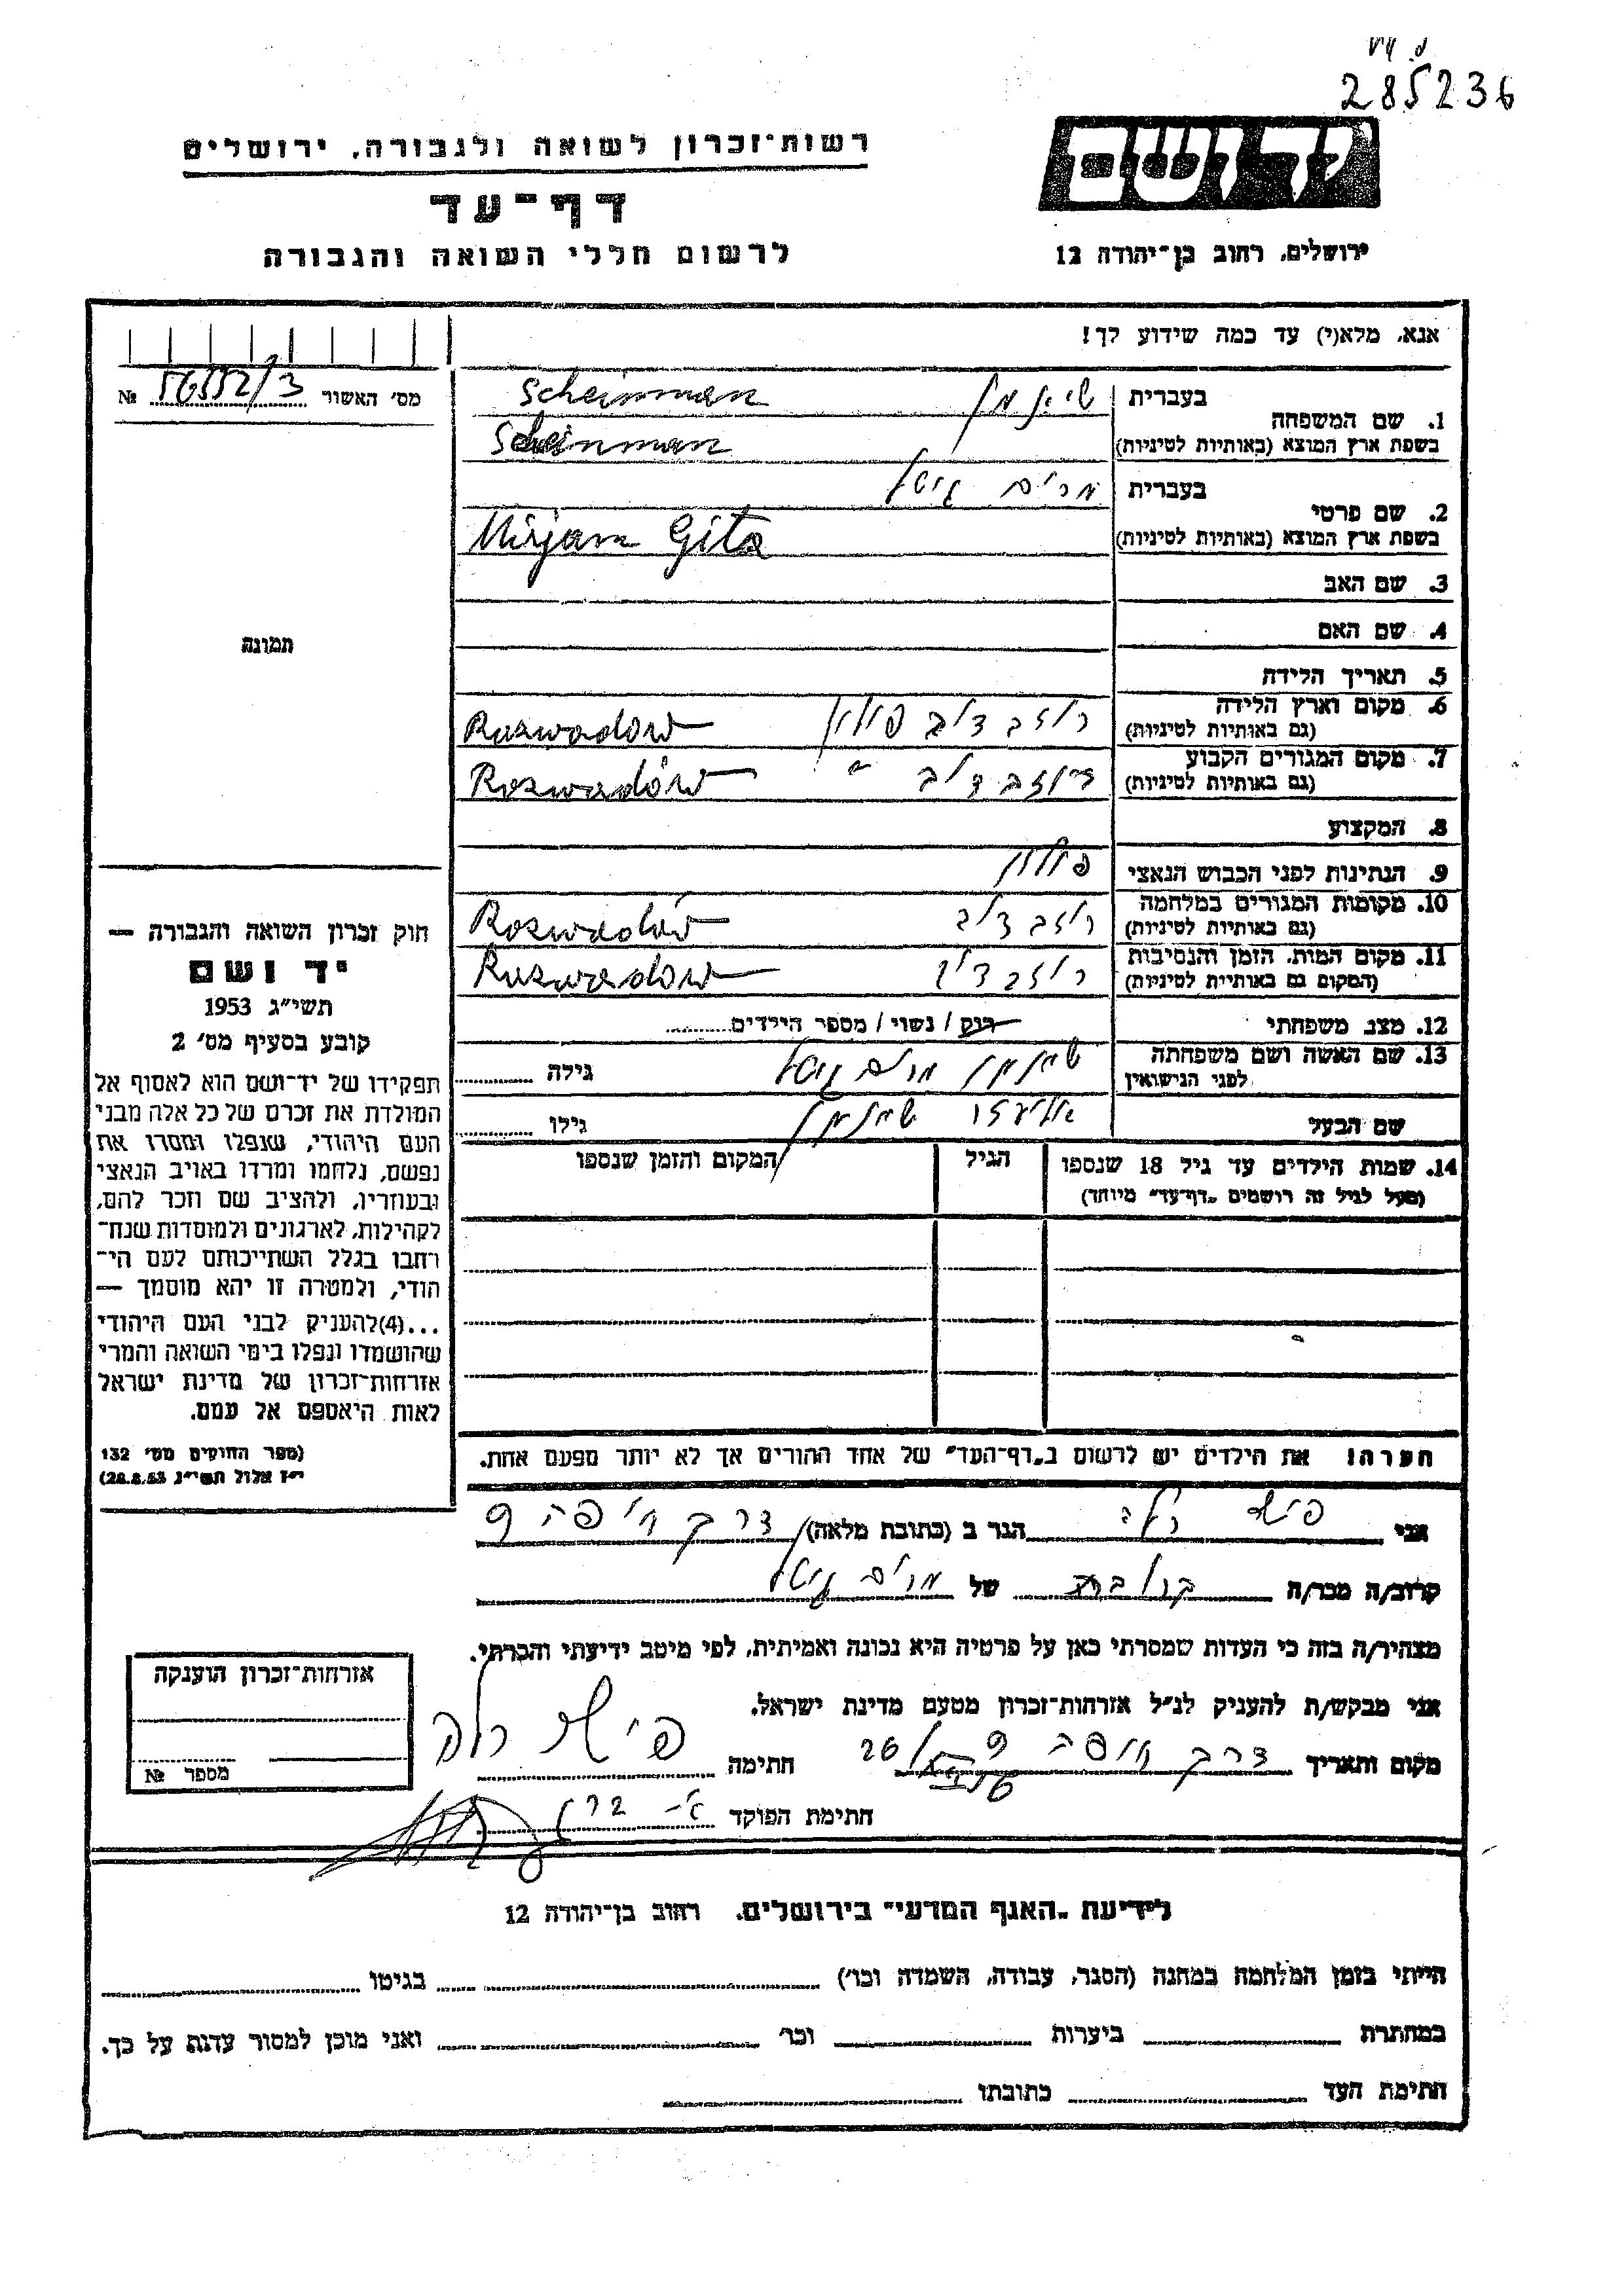 285236
רשות־זכרון לשואה ולגבורה, ירושלים
דף־עד
לרשום חללי השואה והגבורה
יד ושם
ירושלים, רחוב בן־יהודה 12
אנא, מלא(י) עד כמה שידוע לך!
מס׳ האשור № 56552/3
1. שם המשפחה בעברית שיינמן Scheinman
בשפת ארץ המוצא (באותיות לטיניות) Scheinman
2. שם פרטי בעברית מרים גיטל
בשפת ארץ המוצא (באותיות לטיניות) Mirjam Gita
3. שם האב
4. שם האם
תמונה
5. תאריך הלידה
6. מקום וארץ הלידה רוזבדוב פולין Ruzwadow
(גם באותיות לטיניות)
7. מקום המגורים הקבוע רוזבדוב " Rozwadów
(גם באותיות לטיניות)
8. המקצוע
9. הנתינות לפני הכבוש הנאצי פולין
10. מקומות המגורים במלחמה רוזבדוב Rozwadów
(גם באותיות לטיניות)
11. מקום המות, הזמן והנסיבות רוזבדוב Ruzwadow
(המקום גם באותיות לטיניות)
12. מצב משפחתי רווק / נשוי / מספר הילדים
13. שם האשה ושם משפחתה שיינמן מרים גיטל גילה
לפני הנישואין
שם הבעל אליעזר שיינמן גילו
14. שמות הילדים עד גיל 18 שנספו הגיל המקום והזמן שנספו
(מעל לגיל זה רושמים „דף־עד״ מיוחד)
הערה! את הילדים יש לרשום ב„דף־העד״ של אחד ההורים אך לא יותר מפעם אחת.
חוק זכרון השואה והגבורה —
יד ושם
תשי״ג 1953
קובע בסעיף מס׳ 2
תפקידו של יד־ושם הוא לאסוף אל
המולדת את זכרם של כל אלה מבני
העם היהודי, שנפלו ומסרו את
נפשם, נלחמו ומרדו באויב הנאצי
ובעוזריו, ולהציב שם וזכר להם,
לקהילות, לארגונים ולמוסדות שנח־
רבו בגלל השתייכותם לעם הי־
הודי, ולמטרה זו יהא מוסמך —
...(4)להעניק לבני העם היהודי
שהושמדו ונפלו בימי השואה והמרי
אזרחות־זכרון של מדינת ישראל
לאות היאספם אל עמם.
(ספר החוקים מס׳ 132
י״ז אלול תשי״ג 28.8.53)
אני פישר הגר ב (כתובת מלאה) דרך חיפה 9
קרוב/ה מכר/ה קרובה של מרים גיטל
מצהיר/ה בזה כי העדות שמסרתי כאן על פרטיה היא נכונה ואמיתית, לפי מיטב ידיעתי והכרתי.
אני מבקש/ת להעניק לנ״ל אזרחות־זכרון מטעם מדינת ישראל.
מקום ותאריך דרך חיפה 9 חתימה פישר
חתימת הפוקד
אזרחות־זכרון הוענקה
מספר №
לידיעת „האגף המדעי״ בירושלים, רחוב בן־יהודה 12
הייתי בזמן המלחמה במחנה (הסגר, עבודה, השמדה וכו׳) בגיטו
במחתרת ביערות וכו׳ ואני מוכן למסור עדות על כך.
חתימת העד כתובתו